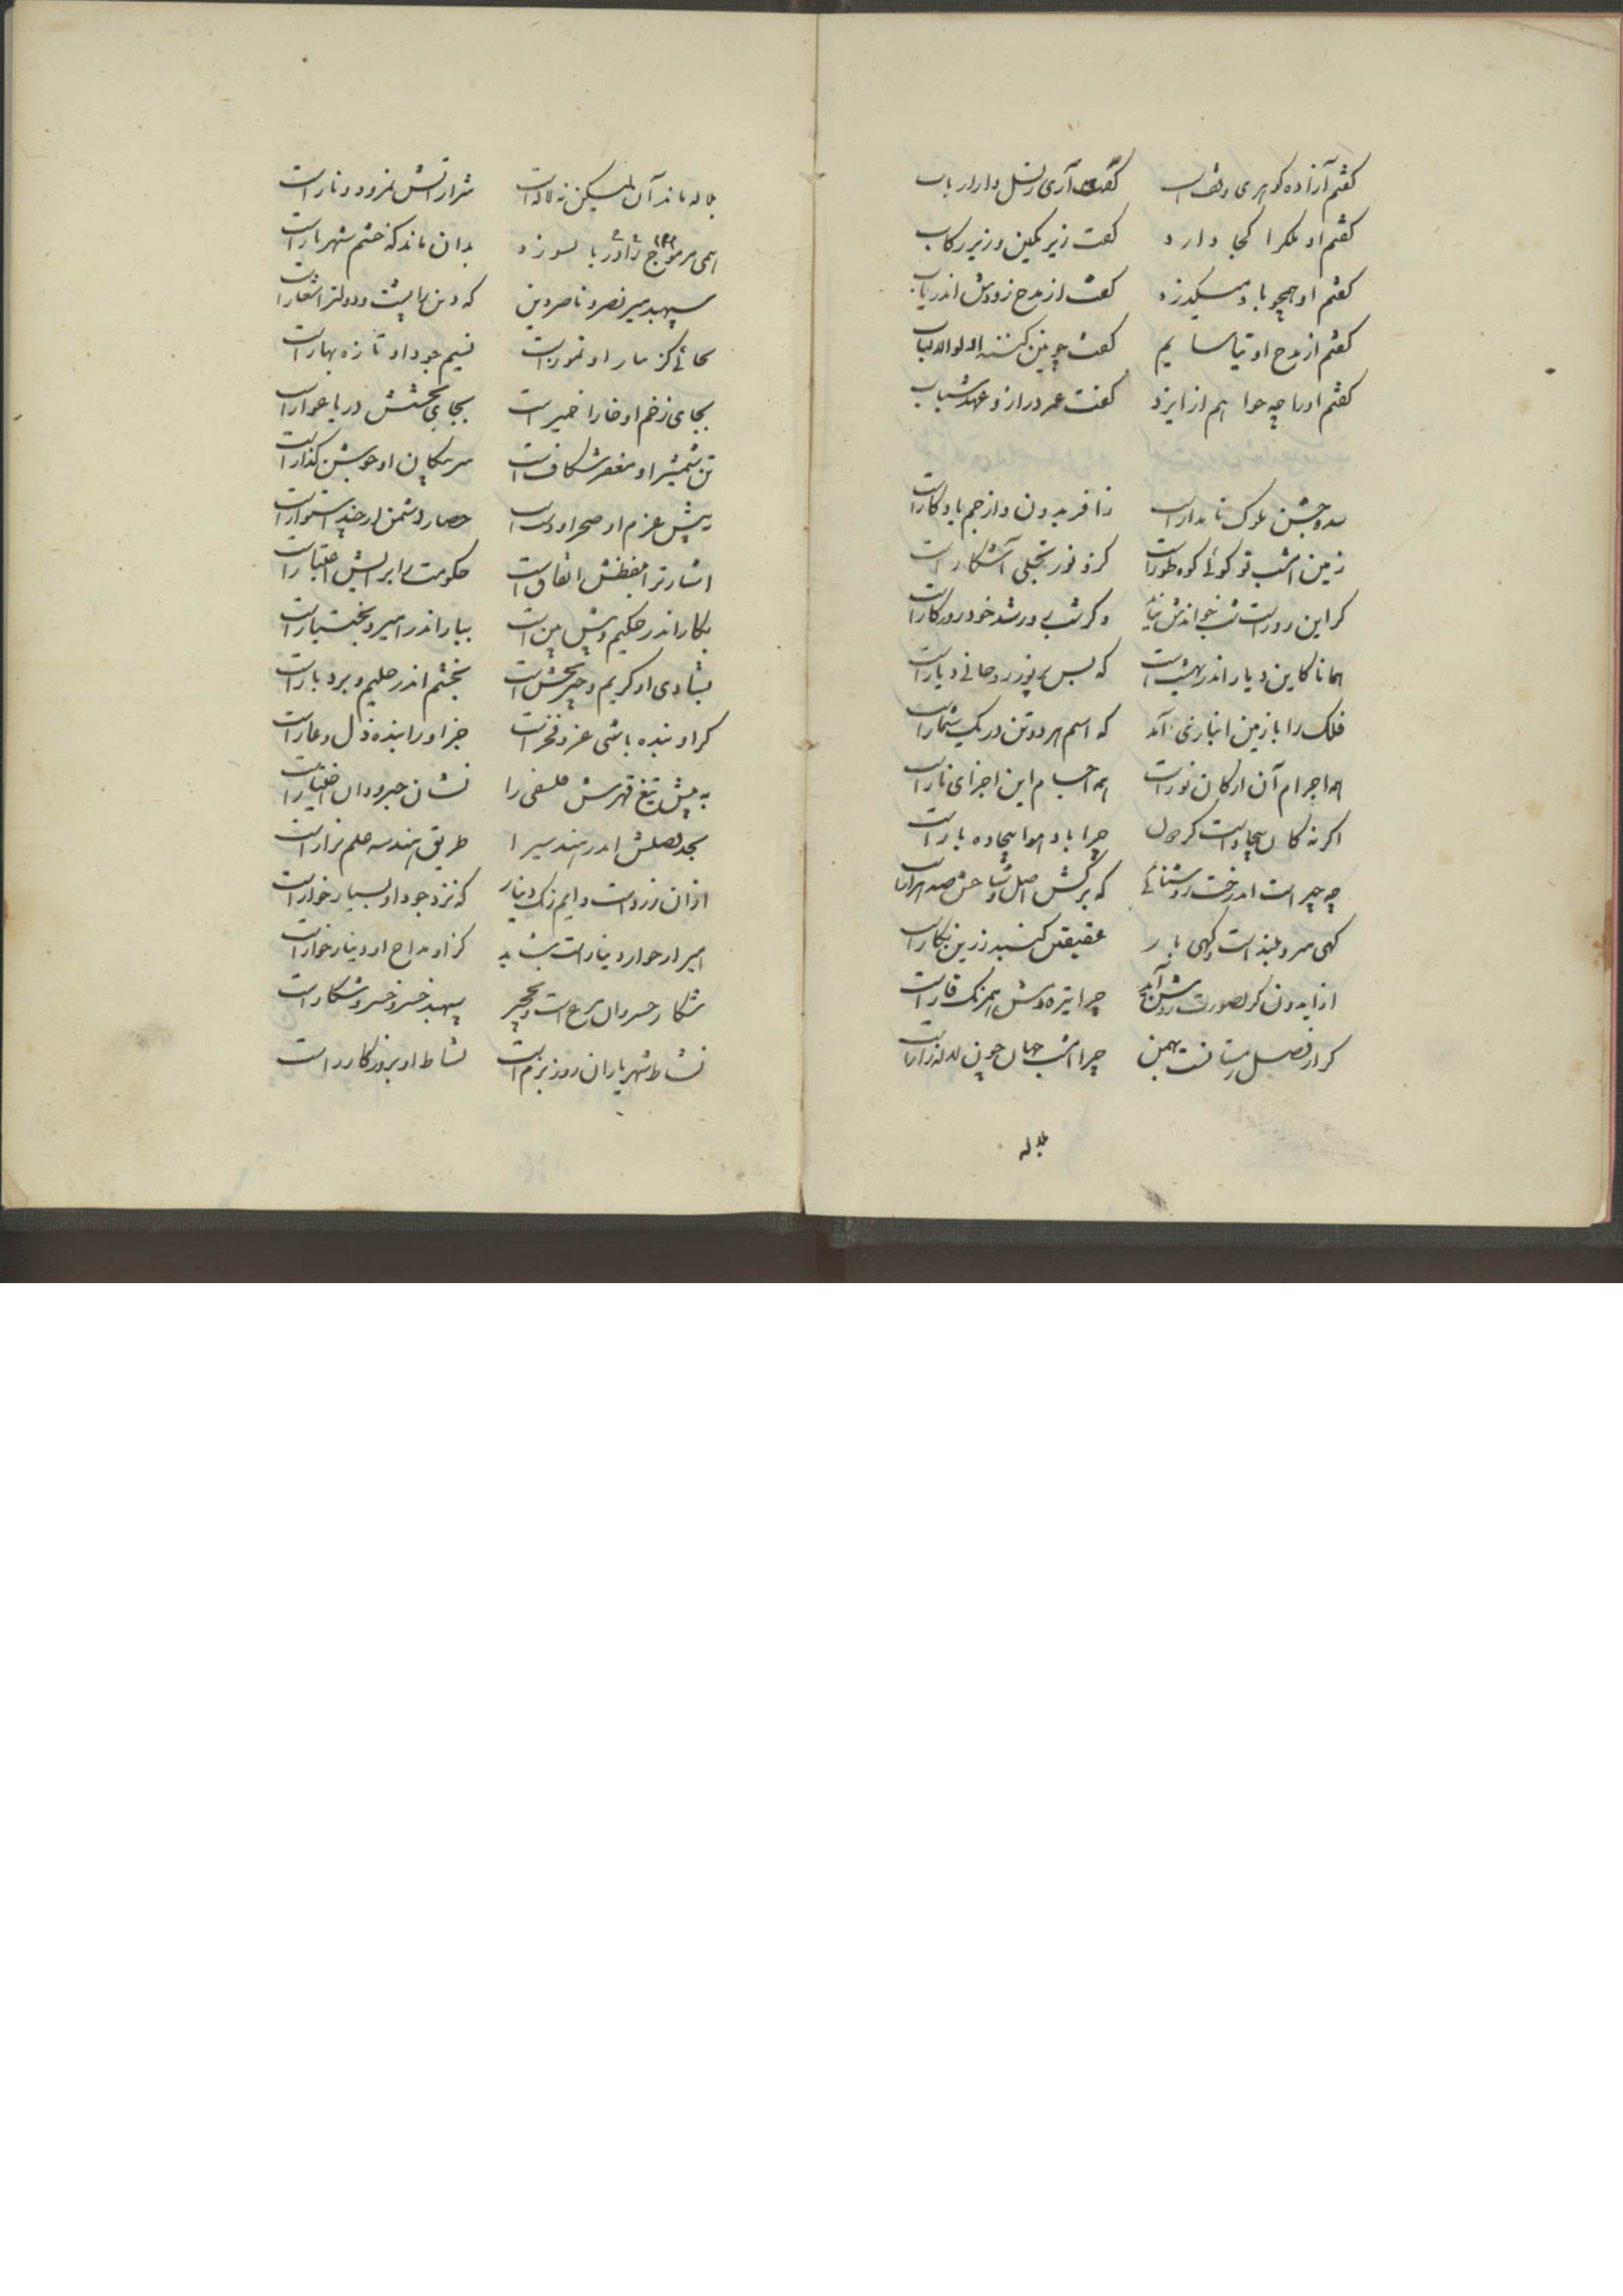 کفتم آزاده کوهری وقف است کفت آری ز نسل دارا رباب
کفتم او ملکرا کجا دارد کفت زیر نکین و زیر رکاب
کفتم او همچو باد میکذرد کفت از مدح زودش اندریاب
کفتم از مدح او نیاسایم کفت چونین کنند اولوالالباب
کفتم اورا چه خواهم از ایزد کفت عمر دراز و عهد شباب
سده جشن ملوک نامدار است ز افریدون و از جم یادکار است
زمین امشب تو کوئی کوه طور است کزو نور تجلی آشکار است
کر این روز است شب خواندش نباید وکر شب روز شد خود روزکار است
همانا کاین دیار اندر بهشت است که بس پر نور و روحانی دیار است
فلک را با زمین انبازی آمد که اسم هر دو تن در یک شمار است
همه اجرام آن ارکان نور است همه اجسام این اجزای نار است
اکر نه کان بیجاده است کردون چرا باد هوا بیجاده بار است
چه چیز است اندرخت روشنائی که برکش اصل و شاخش صد هزار است
کهی سرو بلند است و کهی باز عقیقین کنبد زرین نکار است
ار ایدون کر بصورت روشن آمد چرا تیره وش همرنک قار است
کر از فصل زمستانست بهمن چرا امشب جهان چون لاله‌زار است
بلاله
بلاله ماند آن لیکن نه لاله است شرار آتش نمرود و نار است
همی مر موج دریا را بسوزد بدان ماند که خشم شهریار است
سپهبد میر نصر و ناصر دین که دین را پشت و دولترا شعار است
بجائی کز مار او تموز است نسیم جود او تازه بهار است
بجای زخم او خارا خمیر است بجای بخشش دریا غدار است
تن شمشیر او مغفر شکاف است سر پیکان او جوشن کذار است
به پیش عزم او صحرا و دشت است حصار دشمن ار چند استوار است
اشارترا بلفظش اتفاق است حکومت را برایش اعتبار است
بکار اندر حکیم و پیش بین است ببار اندر امیر و بختیار است
بشادی او کریم و چیز بخش است بخشم اندر حلیم و بردبار است
کر او بنده باشی عز و فخر است جز اورا بنده ذل و عار است
به پیش تیغ قهرش فلسفی را نشان جبر و دان اختیار است
بجد فصلش اندر هندسیرا طریق هندسه علم نزار است
از آن زرد است دایم رنک دینار که نزد جود او بسیار خوار است
امیر ار خوار دینار است شاید کزو مداح او دینار خوار است
شکار خسروان مرغ است و نخجیر سپهبد خسرو خسرو شکار است
نشاط شهریاران روز بزم است نشاط او بروز کارزار است